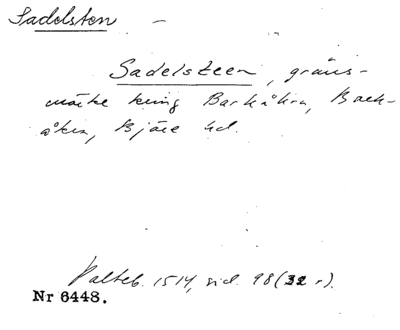 Sadelsten
Sadelsteen, gräns-
märke kring Barkåkra, Bark-
åkra, Bjäre hd.
Palteb. 1514, sid. 98 (32 r).
Nr 6448.